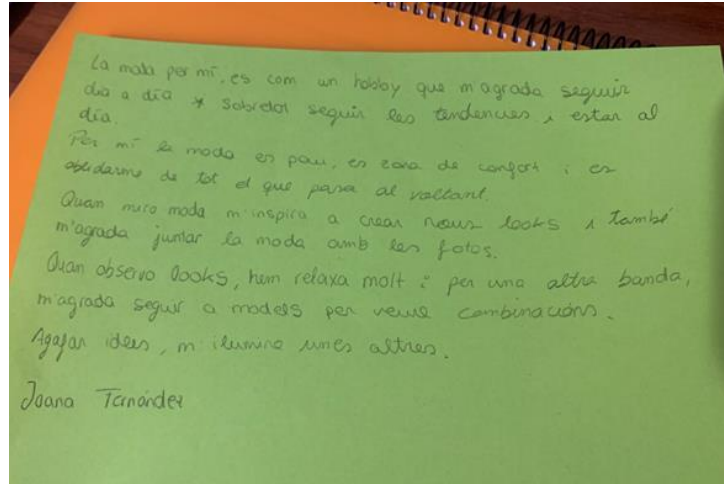 La moda per mí, es com un hobby que m'agrada seguir
dia a día * Sobretot seguir les tendencies i estar al
día.
Per mí la moda es pau, es zona de confort i es
oblidarme de tot el que passa al voltant.
Quan miro moda m'inspira a crear nous looks i també
m'agrada juntar la moda amb les fotos.
Quan observo looks, hem relaxa molt i per una altra banda,
m'agrada seguir a models per veure combinacións.
Agafar idees, m'ilumine unes altres.
Joana Fernández